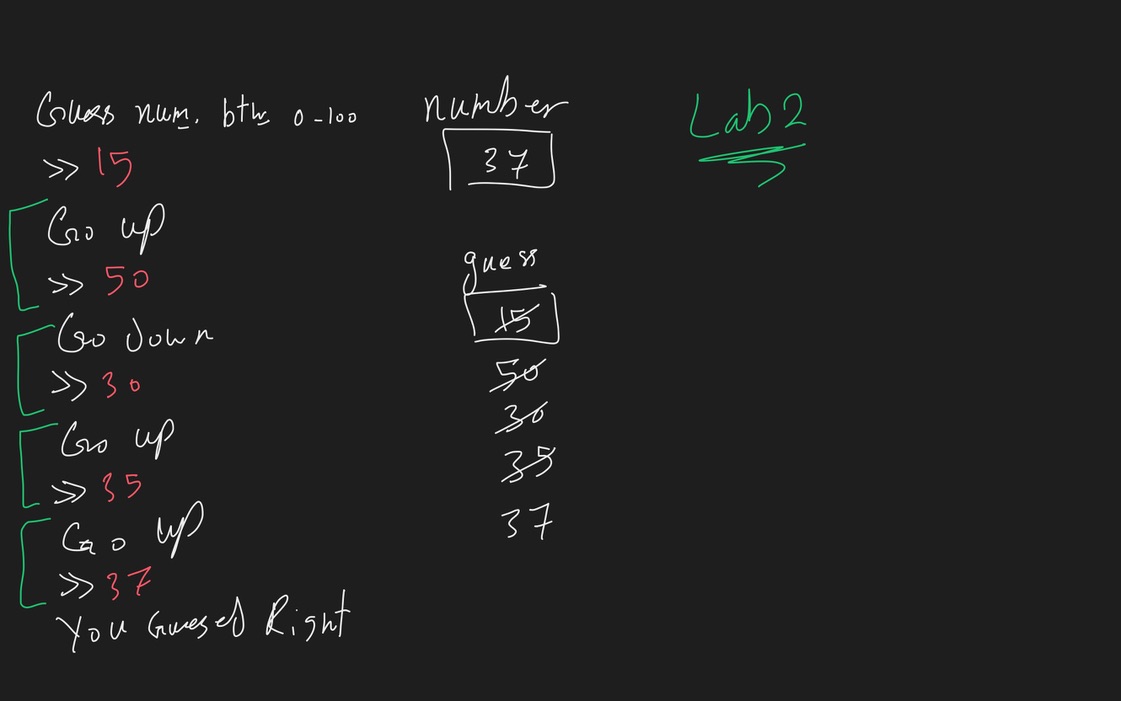 Guess num. btw 0-100
>> 15
Go up
>> 50
Go down
>> 30
Go up
>> 35
Go up
>> 37
You Guesed Right
number
37
guess
15
50
30
35
37
Lab 2